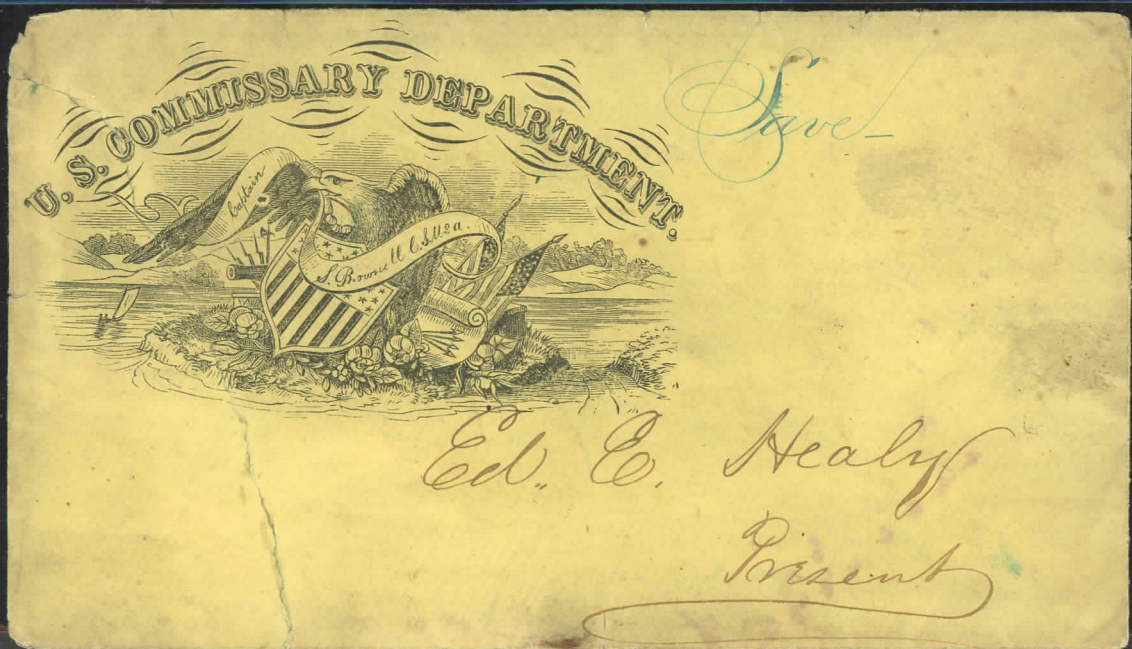 U. S. COMMISSARY DEPARTMENT.
Save
Captain
S. Brownell C.S.U.S.A.
Ed. E. Healy
Present